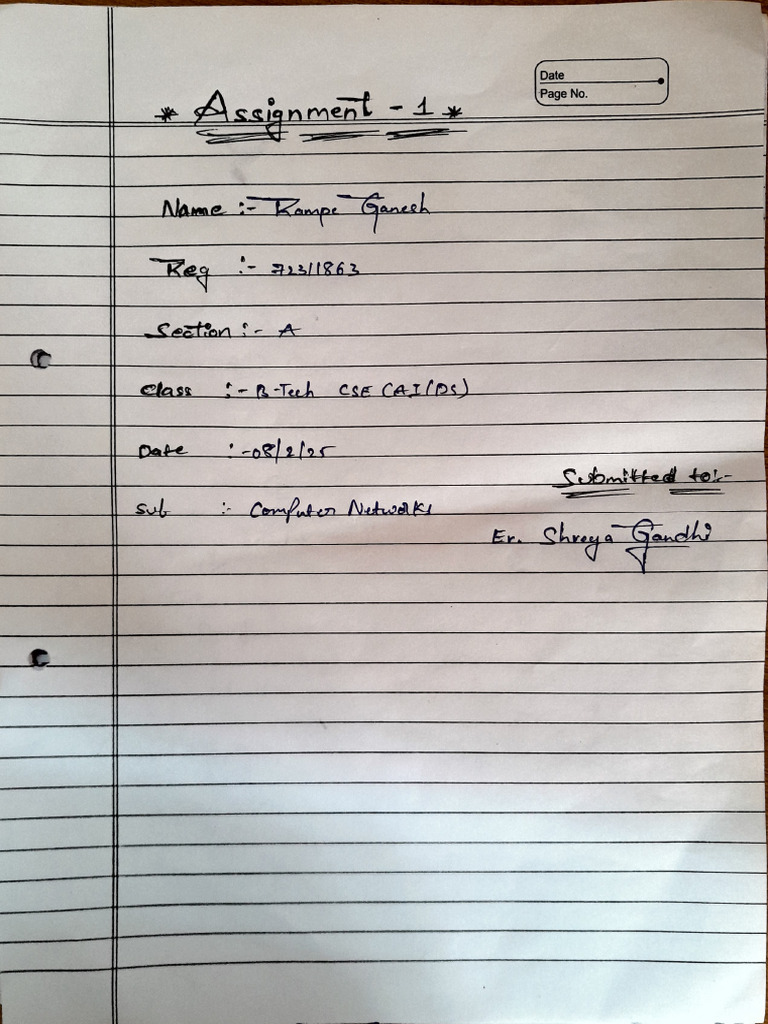 Date
Page No.
* Assignment - 1 *
Name :- Rampe Ganesh
Reg :- 72311863
Section :- A
Class :- B-Tech CSE CAI(DS)
Date :- 08/2/25
Submitted to:-
Sub :- Computer Networks
Er. Shreya Gandhi